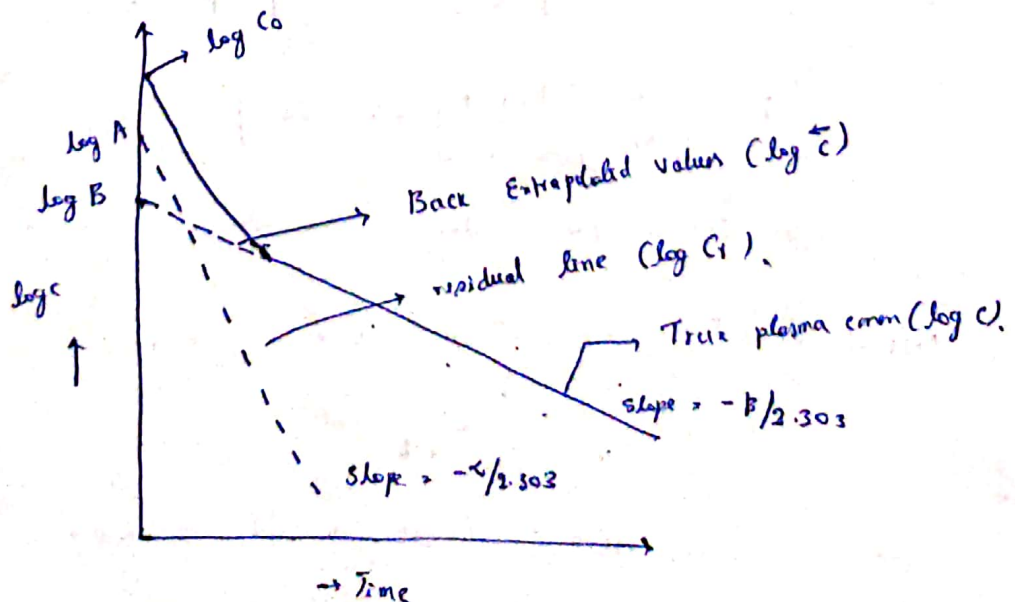 log Co
log A
log B
Back Extrapolated values (log c̄)
residual line (log Cr).
log c
True plasma concn (log c).
slope = -β/2.303
slope = -α/2.303
→ Time